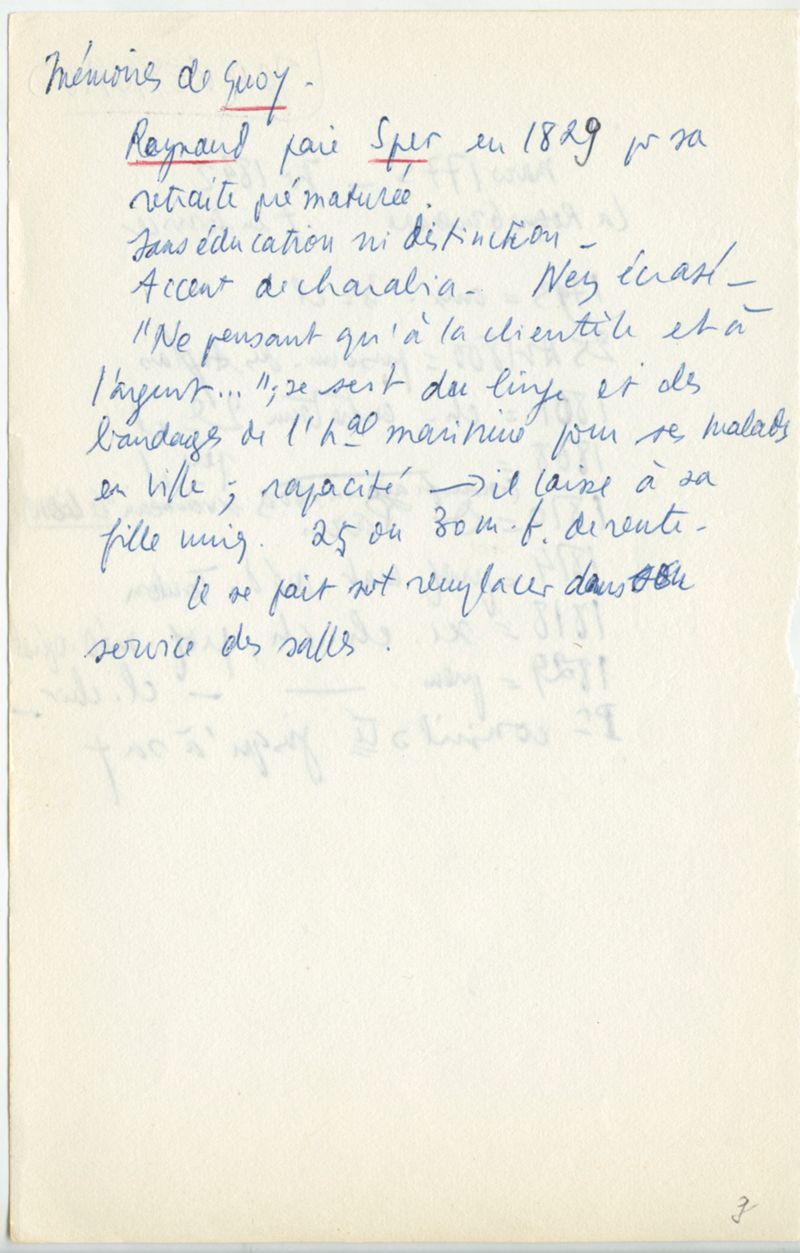 Mémoires de Quoy.
Raynaud paie Sper en 1829 pr sa
retraite prématurée.
Sans éducation ni distinction _
Accent de charabia _ Nez écrasé _
"Ne pensant qu'à la clientèle et à
l'argent..."; se sert du linge et des
bandages de l'hal maritime pour ses malades
en ville ; rapacité → il laisse à sa
fille uniq. 25 ou 30 m. f. de rente -
Il se fait svt remplacer dans son
service des salles.